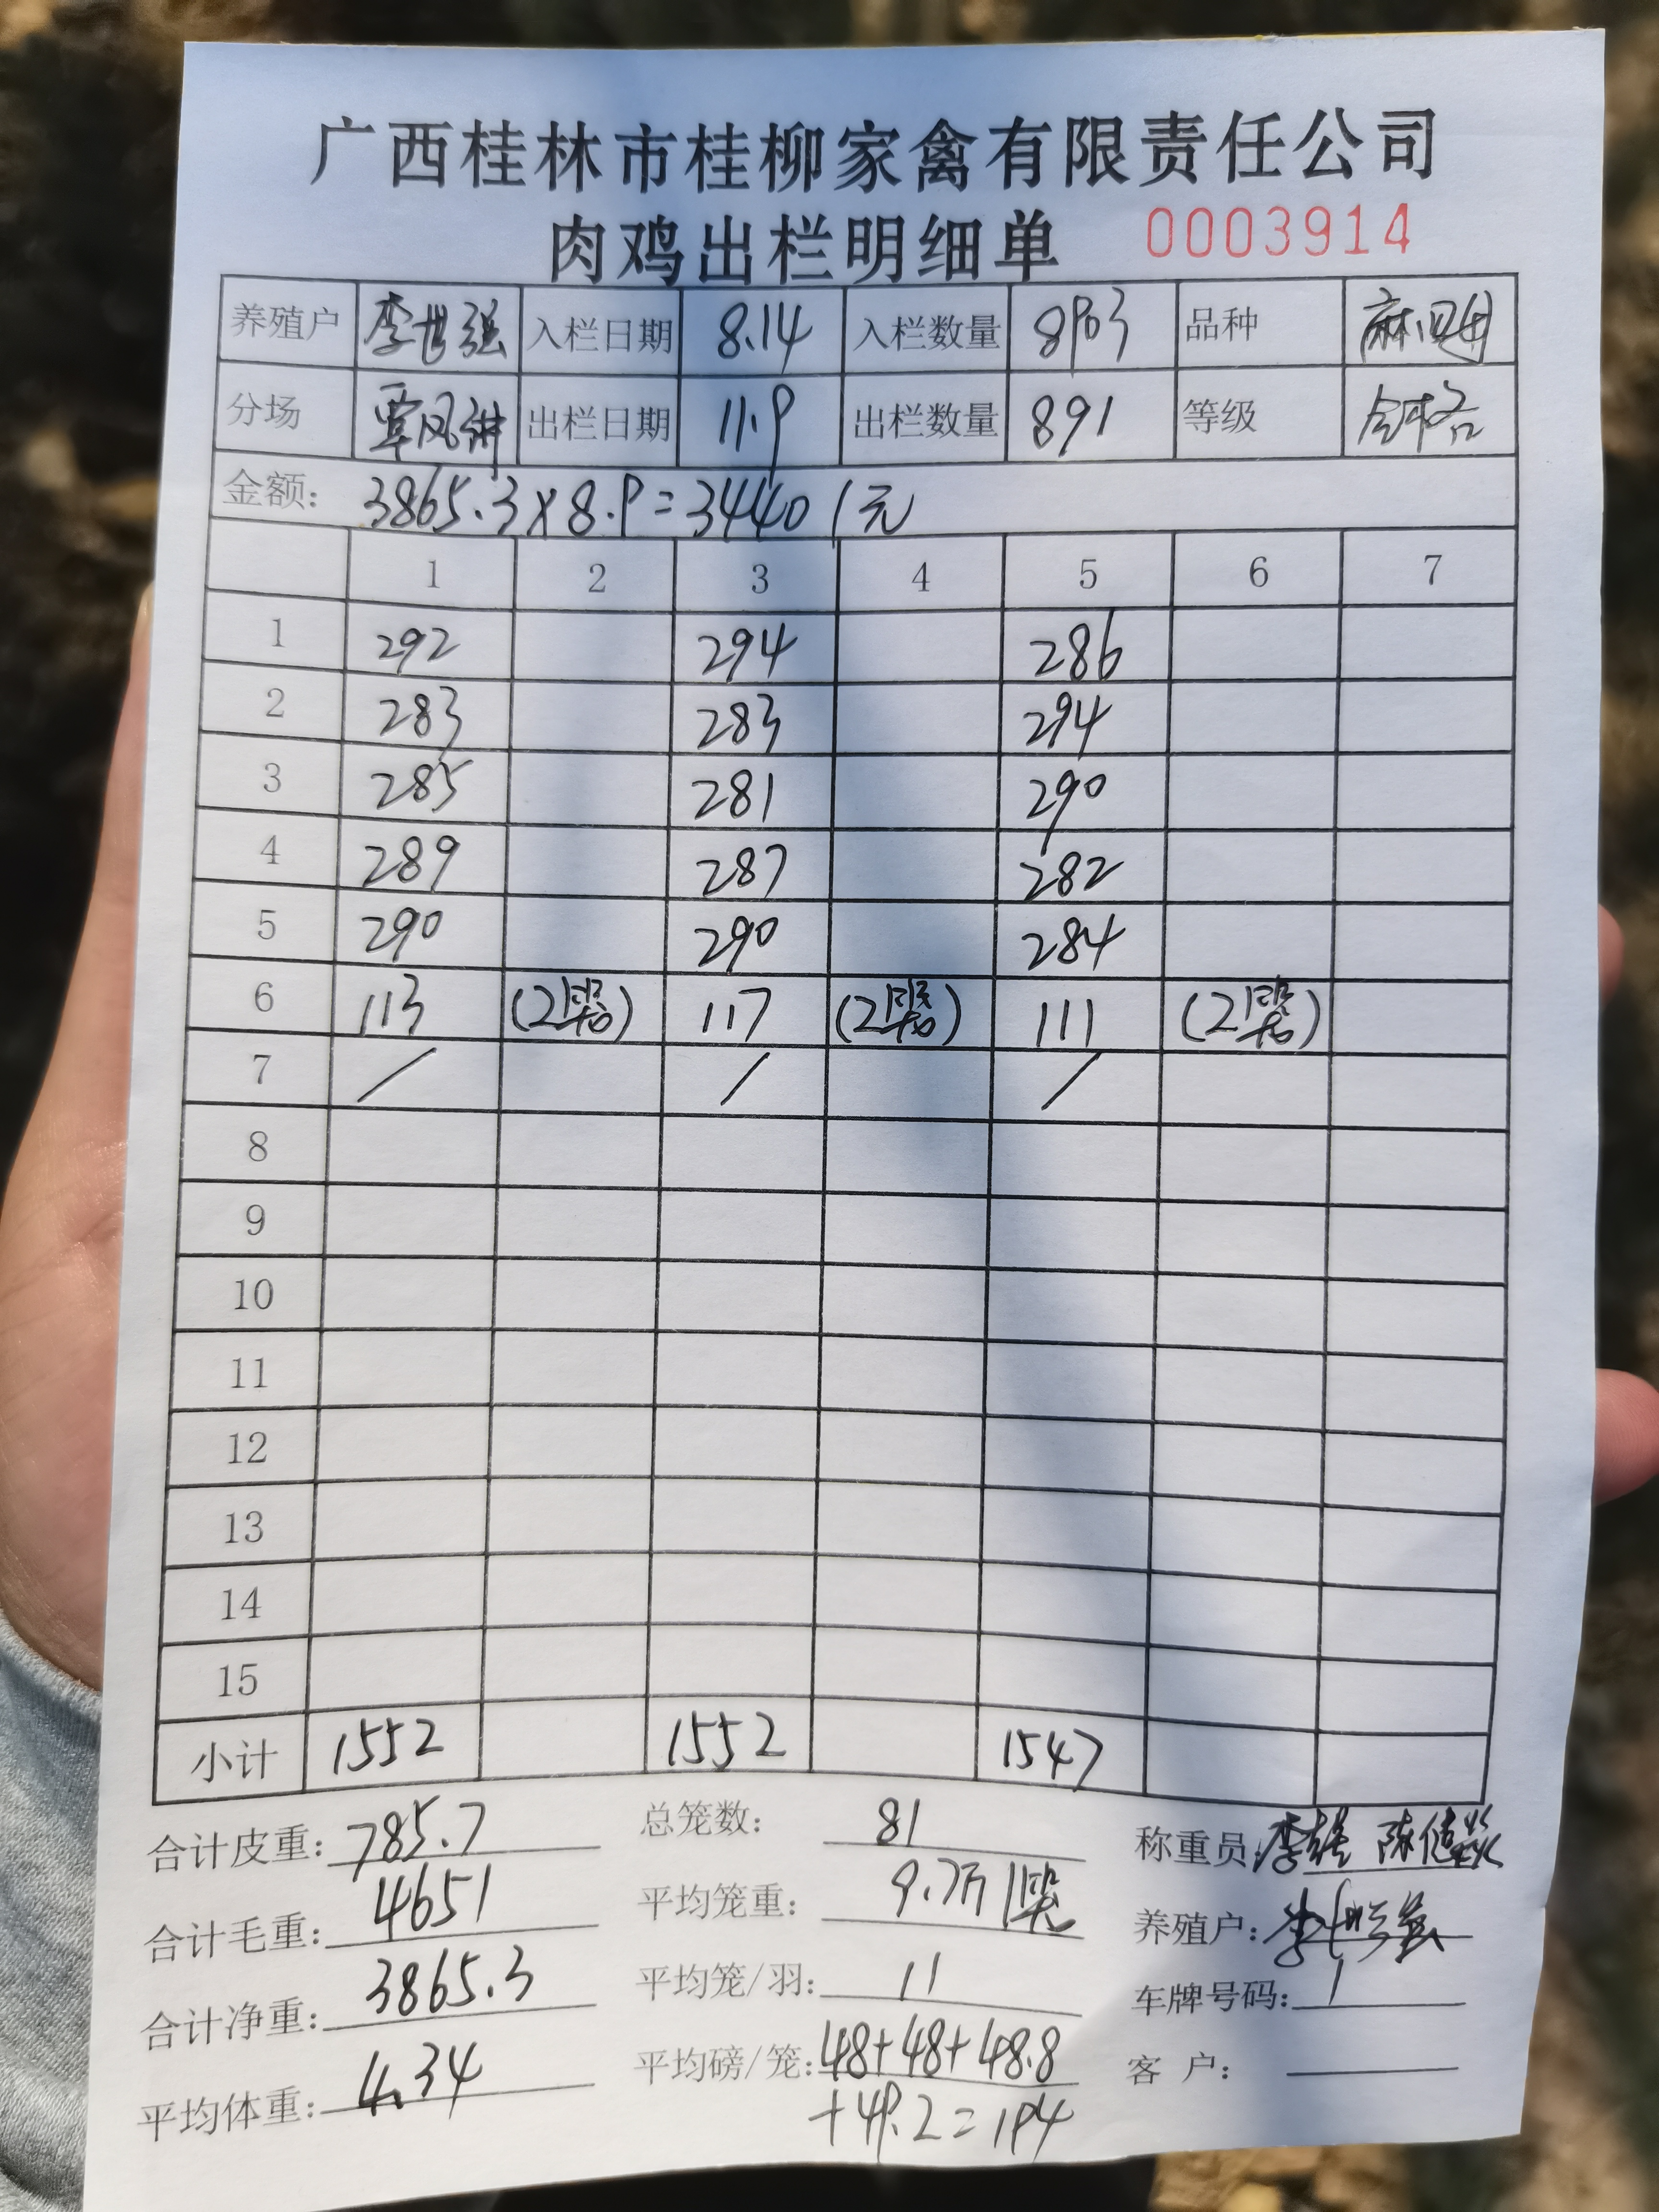 广西桂林市桂柳家禽有限责任公司
肉鸡出栏明细单 0003914
养殖户 李世强 入栏日期 8.14 入栏数量 8903 品种
分场 覃凤 出栏日期 11.9 出栏数量 891 等级 合格
金额: 3865.3×8.9=34401元
1 2 3 4 5 6 7
1 292 294 286
2 283 283 294
3 285 281 290
4 289 287 282
5 290 290 284
6 113 (2) 117 (2) 111 (2)
7 / / /
8
9
10
11
12
13
14
15
小计 1552 1552 1547
合计皮重: 785.7 总笼数: 81 称重员: 李 陈
合计毛重: 4651 平均笼重: 9.7斤 养殖户:
合计净重: 3865.3 平均笼/羽: 11 车牌号码: 1
平均体重: 4.34 平均磅/笼: 48+48+48.8 客 户:
+49.2=194